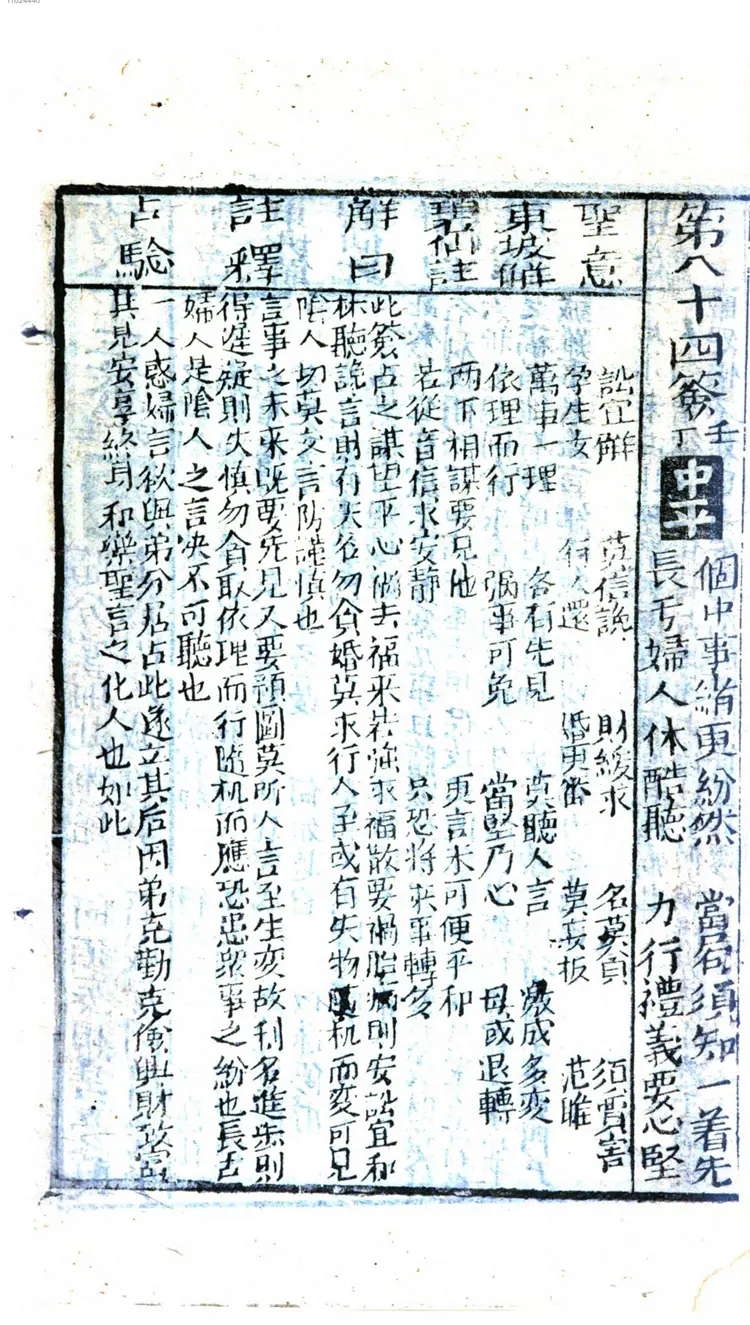 第八十四簽
壬丁
中平
個中事緒更紛然 當局須知一着先
長亏婦人休酷聽 力行禮義要心堅
聖意
訟宜觧 莫信說 財緩求 名莫貪
學生女 行人還 婚更審 莫妄板
東坡觧
萬事一理 各有先見 莫聽人言 激成多変
依理而行 禍事可免 當堅乃心 毋或退轉
碧仙註
两下相謀要見他 更言未可便平和
若従音信求安静 只恐将來事轉多
觧曰
此簽占之謀望平心漸去福来若強求福散要禍胎病則安訟宜和
休聽說言則有失名勿貪婚莫求行人至或有失物随机而変可見
隂人切莫交言防謹慎也
註釋
言事之未來既要先見又要預圖莫所人言至生変故利名進步則
得遲疑則失慎勿貪取依理而行隨机而應恐患衆事之紛也長舌
婦人是隂人之言决不可聽也
占驗
一人惑婦言欲與弟分居占此遂立其后因弟克勤克儉與財致富
其見安享終身和樂聖言之化人也如此